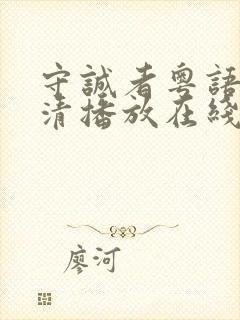 守誠者粵語
清播放在綫
廖河